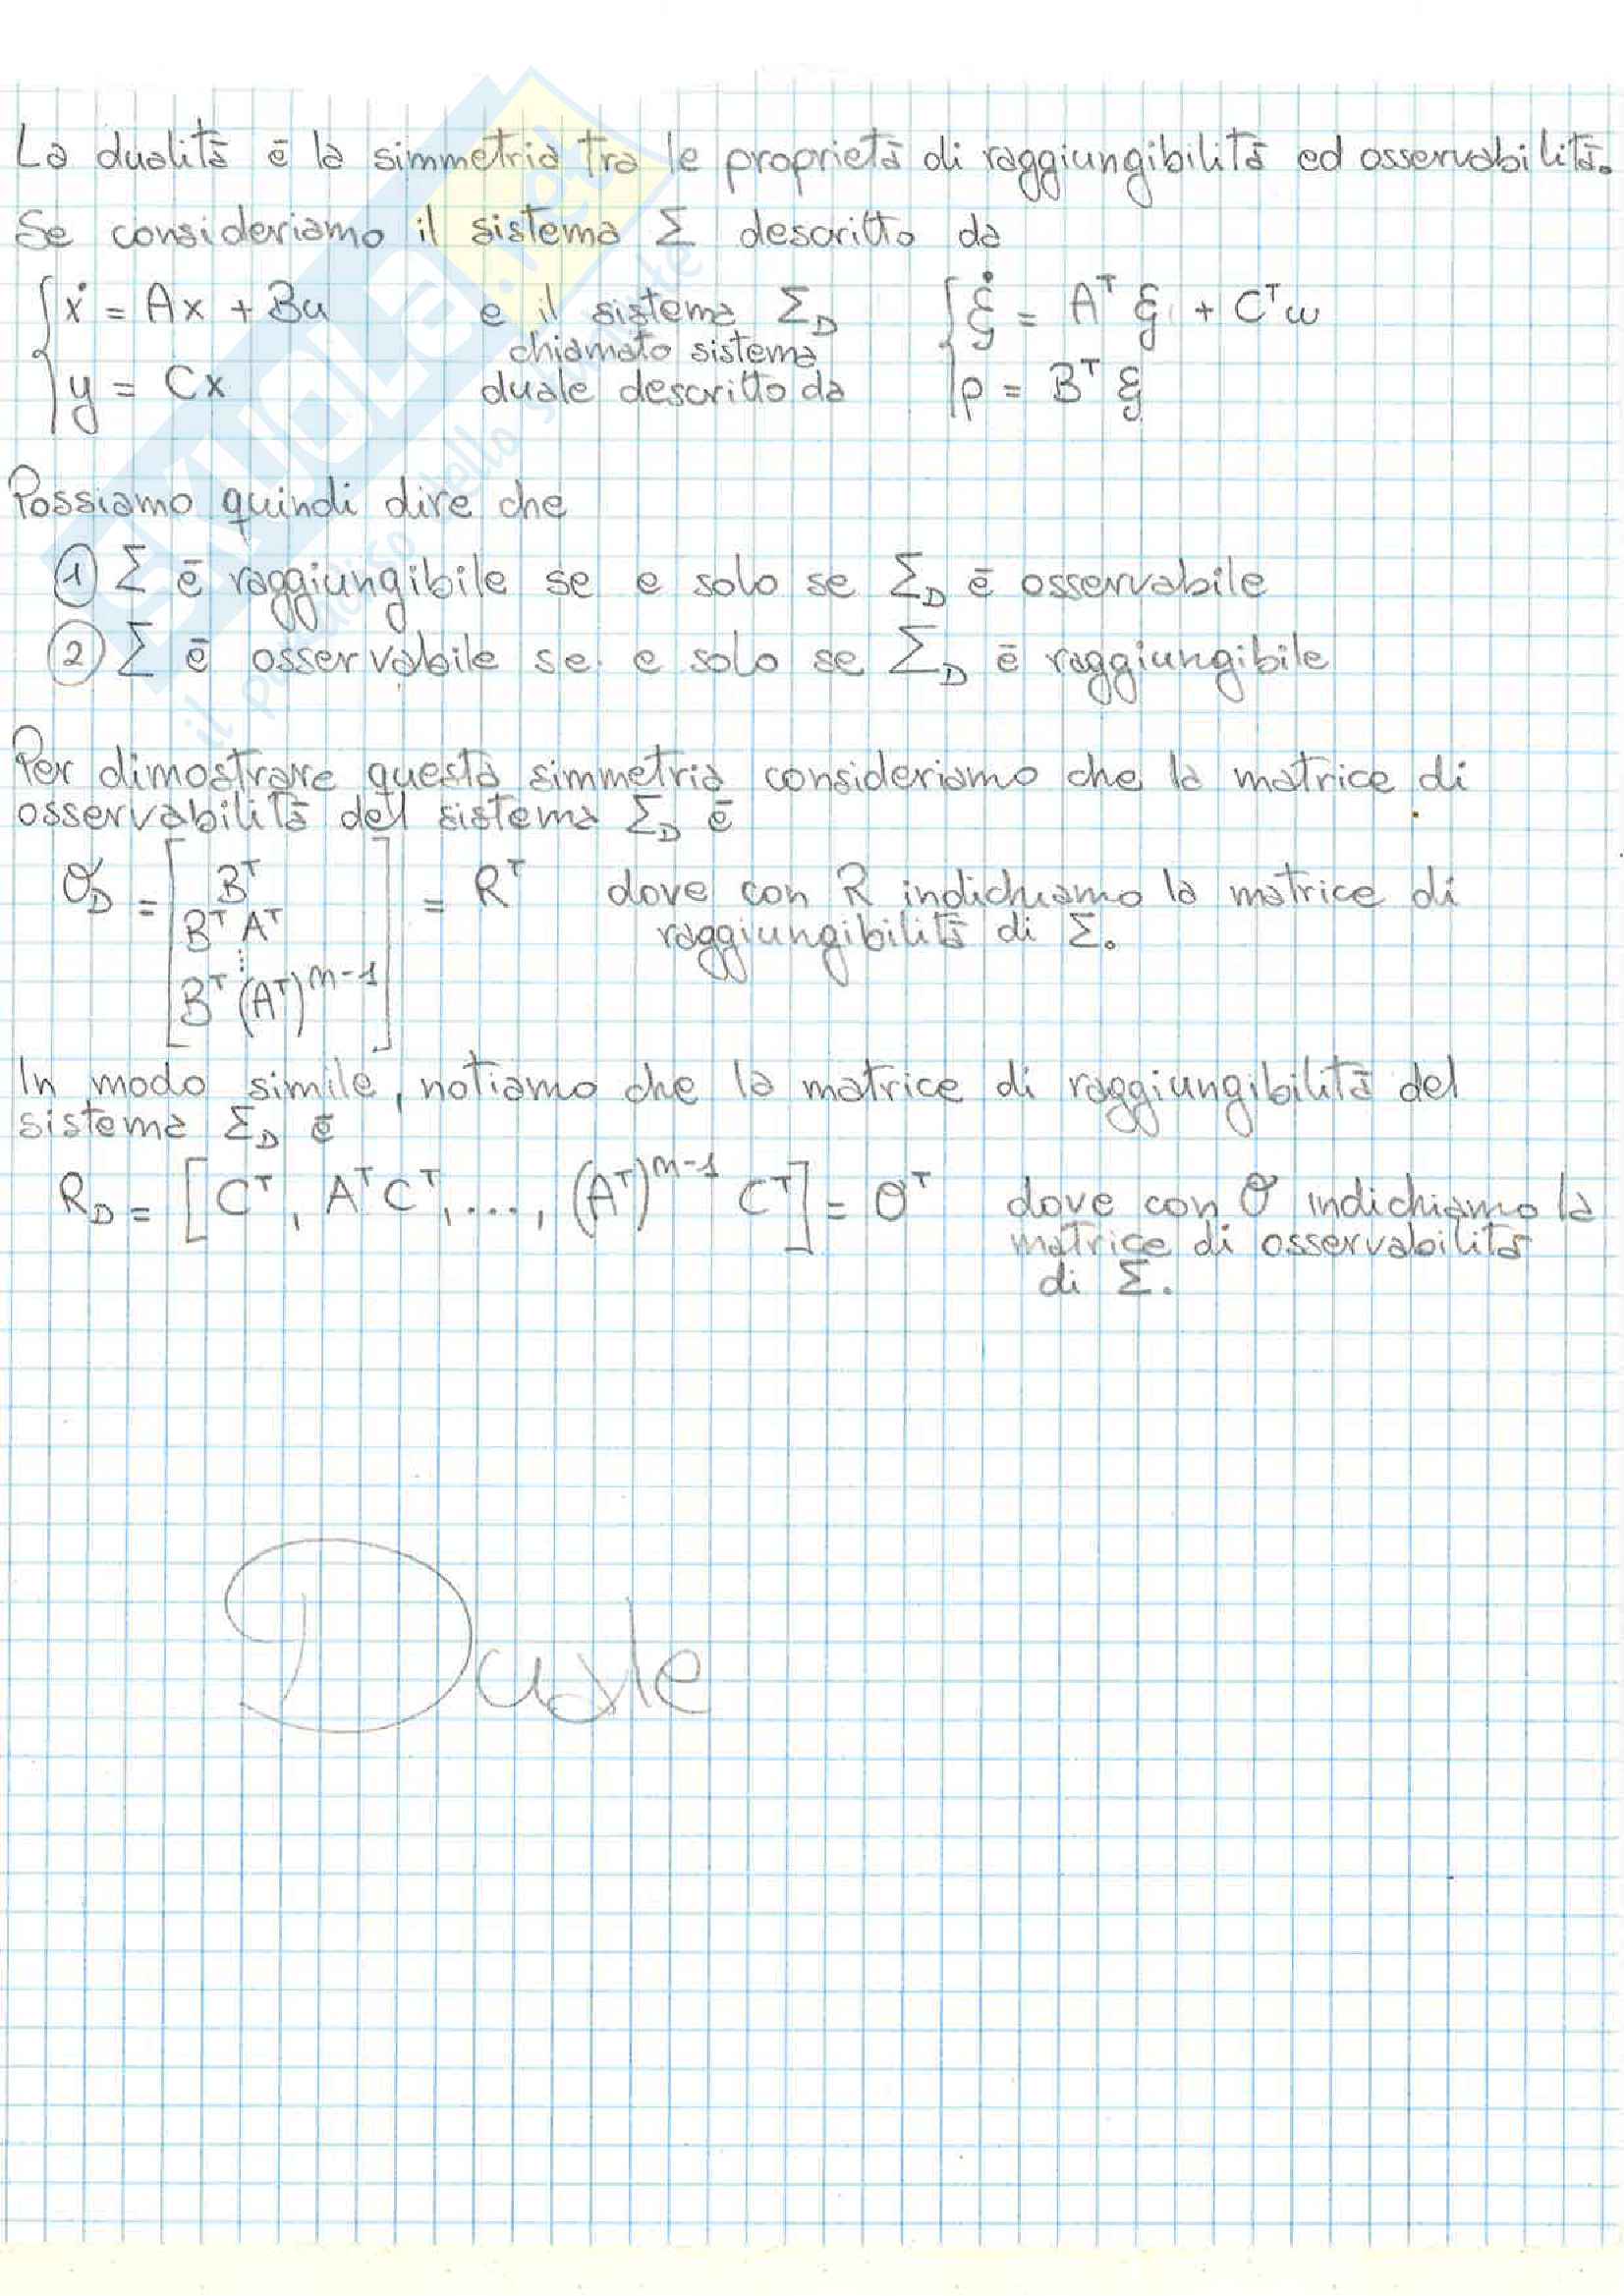 La dualità è la simmetria tra le proprietà di raggiungibilità ed osservabilità.
Se consideriamo il sistema Σ descritto da
{ ẋ = Ax + Bu
y = Cx
e il sistema Σ_D
chiamato sistema
duale descritto da
{ ξ̇ = A^T ξ + C^T ω
ρ = B^T ξ
Possiamo quindi dire che
① Σ è raggiungibile se e solo se Σ_D è osservabile
② Σ è osservabile se e solo se Σ_D è raggiungibile
Per dimostrare questa simmetria consideriamo che la matrice di
osservabilità del sistema Σ_D è
O_D = [ B^T
B^T A^T
⋮
B^T (A^T)^{n-1} ] = R^T
dove con R indichiamo la matrice di
raggiungibilità di Σ.
In modo simile, notiamo che la matrice di raggiungibilità del
sistema Σ_D è
R_D = [ C^T, A^T C^T, ..., (A^T)^{n-1} C^T ] = O^T
dove con O indichiamo la
matrice di osservabilità
di Σ.
Duale
SKUOLA.net
il paradiso dello studente